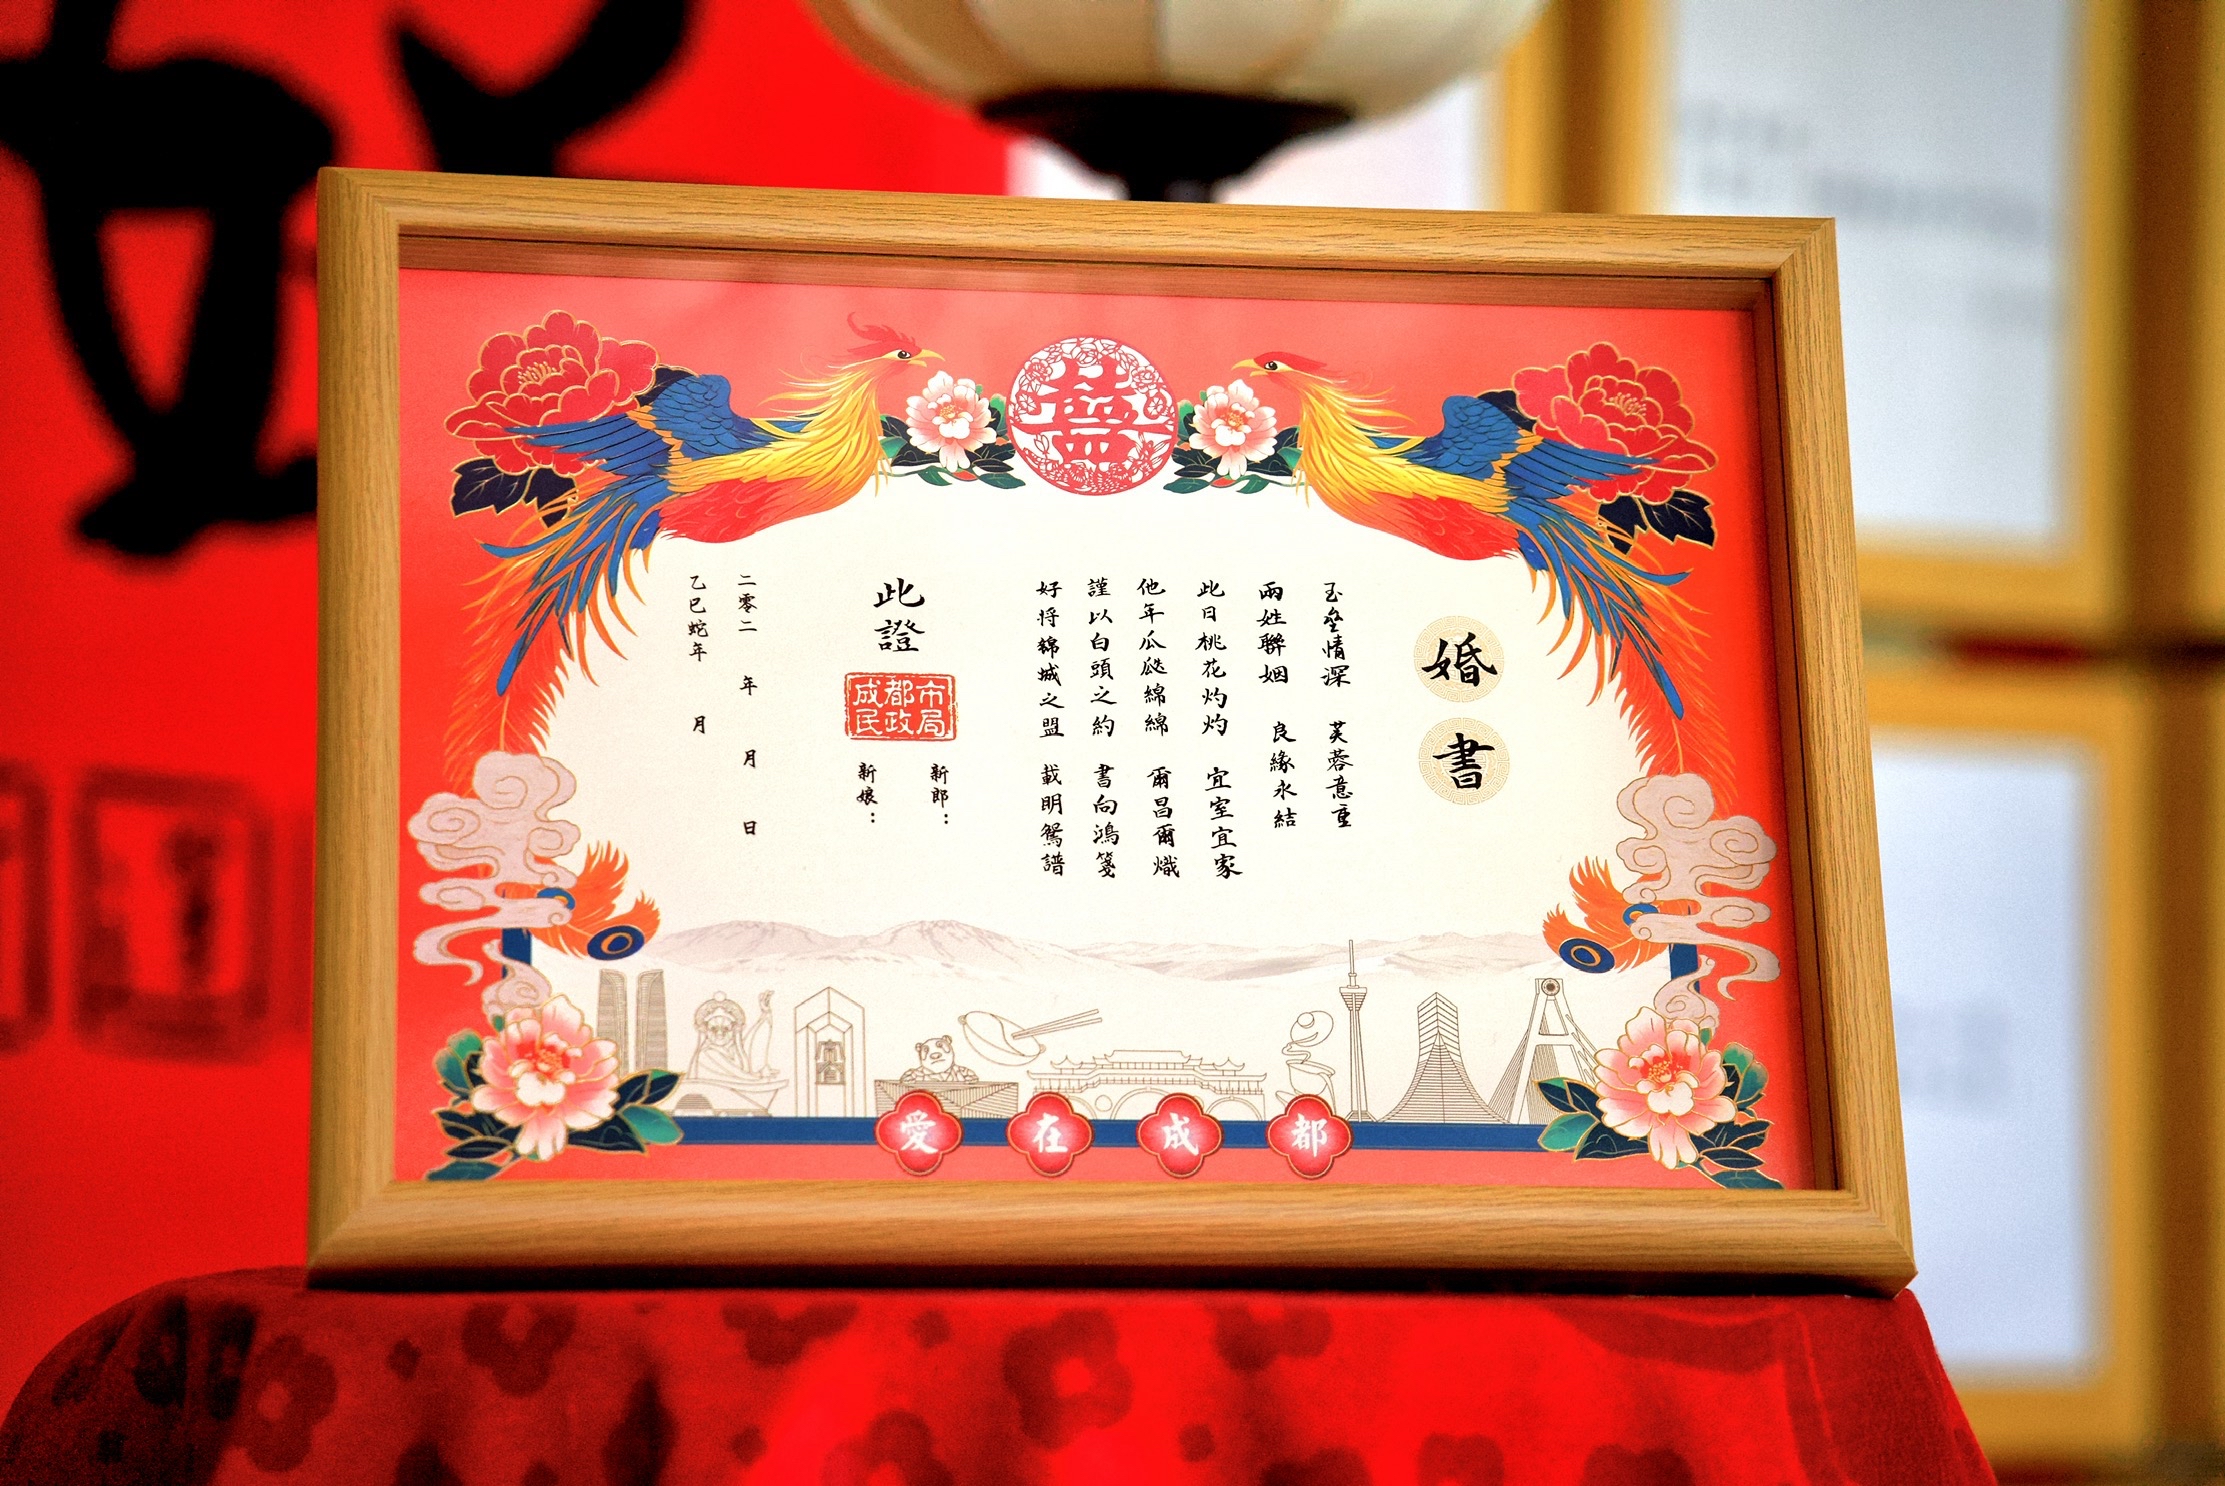 婚書
玉壘情深 芙蓉意重
兩姓聯姻 良緣永結
此日桃花灼灼 宜室宜家
他年瓜瓞綿綿 爾昌爾熾
謹以白頭之約 書向鴻箋
好将錦城之盟 載明鴛譜
此證
成都市民政局
新郎：
新娘：
二零二 年 月 日
乙巳蛇年 月
囍
愛在成都